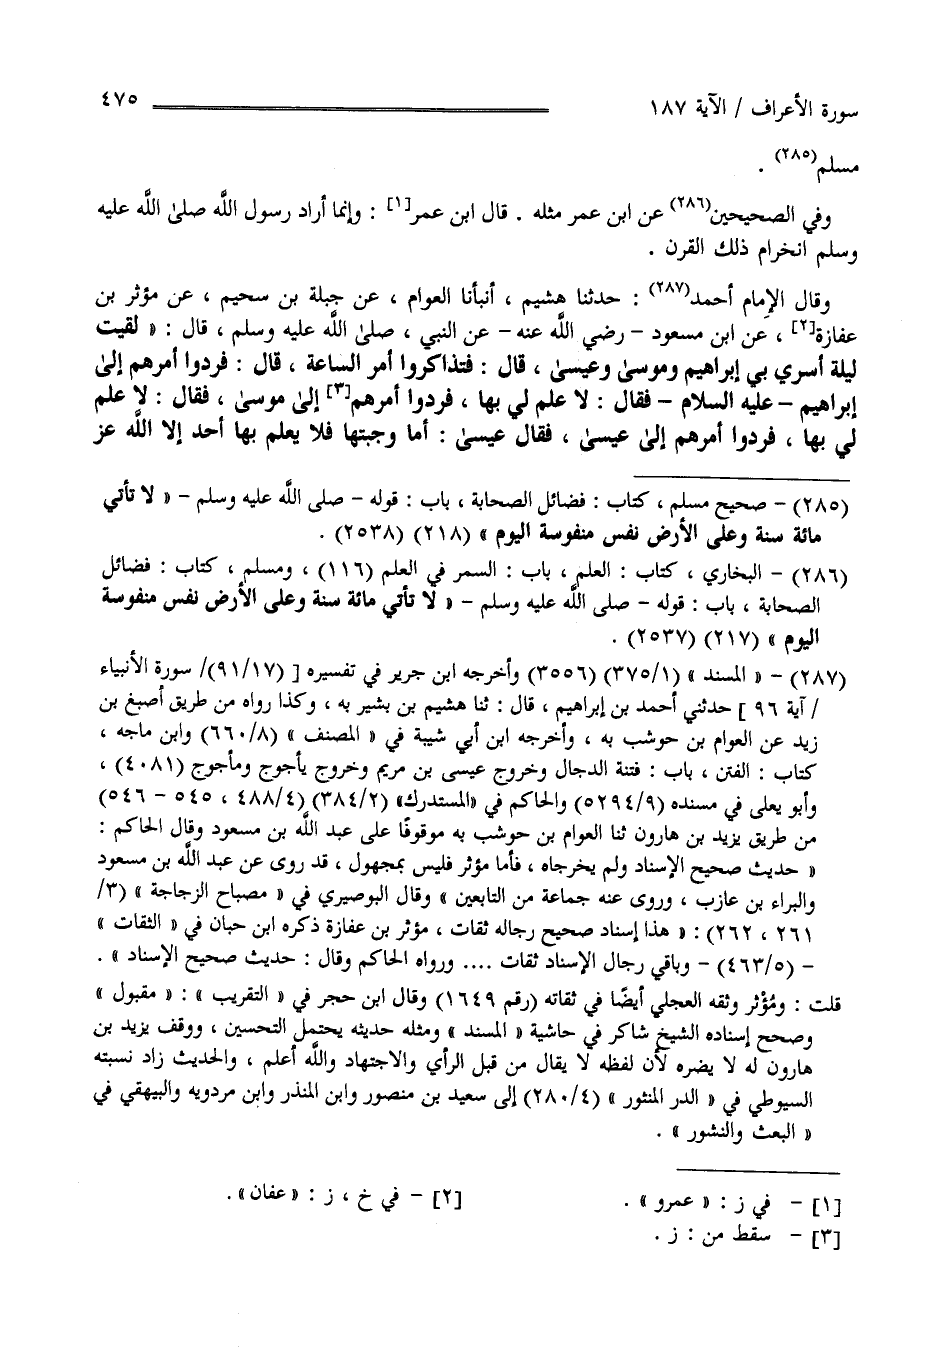 سورة الأعراف / الآية ١٨٧ ٤٧٥
مسلم(٢٨٥) .
وفي الصحيحين(٢٨٦) عن ابن عمر مثله . قال ابن عمر[١] : وإنما أراد رسول الله صلى الله عليه
وسلم انخرام ذلك القرن .
وقال الإمام أحمد(٢٨٧) : حدثنا هشيم ، أنبأنا العوام ، عن جبلة بن سحيم ، عن مؤثر بن
عفازة[٢] ، عن ابن مسعود - رضي الله عنه - عن النبي ، صلى الله عليه وسلم ، قال : « لقيت
ليلة أسري بي إبراهيم وموسى وعيسى ، قال : فتذاكروا أمر الساعة ، قال : فردوا أمرهم إلى
إبراهيم - عليه السلام - فقال : لا علم لي بها ، فردوا أمرهم[٣] إلى موسى ، فقال : لا علم
لي بها ، فردوا أمرهم إلى عيسى ، فقال عيسى : أما وجبتها فلا يعلم بها أحد إلا الله عز
(٢٨٥) - صحيح مسلم ، كتاب : فضائل الصحابة ، باب : قوله - صلى الله عليه وسلم - « لا تأتي
مائة سنة وعلى الأرض نفس منفوسة اليوم » (٢١٨) (٢٥٣٨) .
(٢٨٦) - البخاري ، كتاب : العلم ، باب : السمر في العلم (١١٦) ، ومسلم ، كتاب : فضائل
الصحابة ، باب : قوله - صلى الله عليه وسلم - « لا تأتي مائة سنة وعلى الأرض نفس منفوسة
اليوم » (٢١٧) (٢٥٣٧) .
(٢٨٧) - « المسند » (٣٧٥/١) (٣٥٥٦) وأخرجه ابن جرير في تفسيره [ (٩١/١٧)/ سورة الأنبياء
/ آية ٩٦ ] حدثني أحمد بن إبراهيم ، قال : ثنا هشيم بن بشير به ، وكذا رواه من طريق أصبغ بن
زيد عن العوام بن حوشب به ، وأخرجه ابن أبي شيبة في « المصنف » (٦٦٠/٨) وابن ماجه ،
كتاب : الفتن ، باب : فتنة الدجال وخروج عيسى بن مريم وخروج يأجوج ومأجوج (٤٠٨١) ،
وأبو يعلى في مسنده (٥٢٩٤/٩) والحاكم في «المستدرك» (٣٨٤/٢) (٤٨٨/٤ ، ٥٤٥ - ٥٤٦)
من طريق يزيد بن هارون ثنا العوام بن حوشب به موقوفًا على عبد الله بن مسعود وقال الحاكم :
« حديث صحيح الإسناد ولم يخرجاه ، فأما مؤثر فليس بمجهول ، قد روى عن عبد الله بن مسعود
والبراء بن عازب ، وروى عنه جماعة من التابعين » وقال البوصيري في « مصباح الزجاجة » (٣/
٢٦١ ، ٢٦٢) : « هذا إسناد صحيح رجاله ثقات ، مؤثر بن عفازة ذكره ابن حبان في « الثقات »
- (٤٦٣/٥) - وباقي رجال الإسناد ثقات .... ورواه الحاكم وقال : حديث صحيح الإسناد » .
قلت : ومُؤْثر وثقه العجلي أيضًا في ثقاته (رقم ١٦٤٩) وقال ابن حجر في « التقريب » : « مقبول »
وصحح إسناده الشيخ شاكر في حاشية « المسند » ومثله حديثه يحتمل التحسين ، ووقف يزيد بن
هارون له لا يضره لأن لفظه لا يقال من قبل الرأي والاجتهاد والله أعلم ، والحديث زاد نسبته
السيوطي في « الدر المنثور » (٢٨٠/٤) إلى سعيد بن منصور وابن المنذر وابن مردويه والبيهقي في
« البعث والنشور » .
[١] - في ز : « عمرو » . [٢] - في خ ، ز : « عفان» .
[٣] - سقط من : ز .